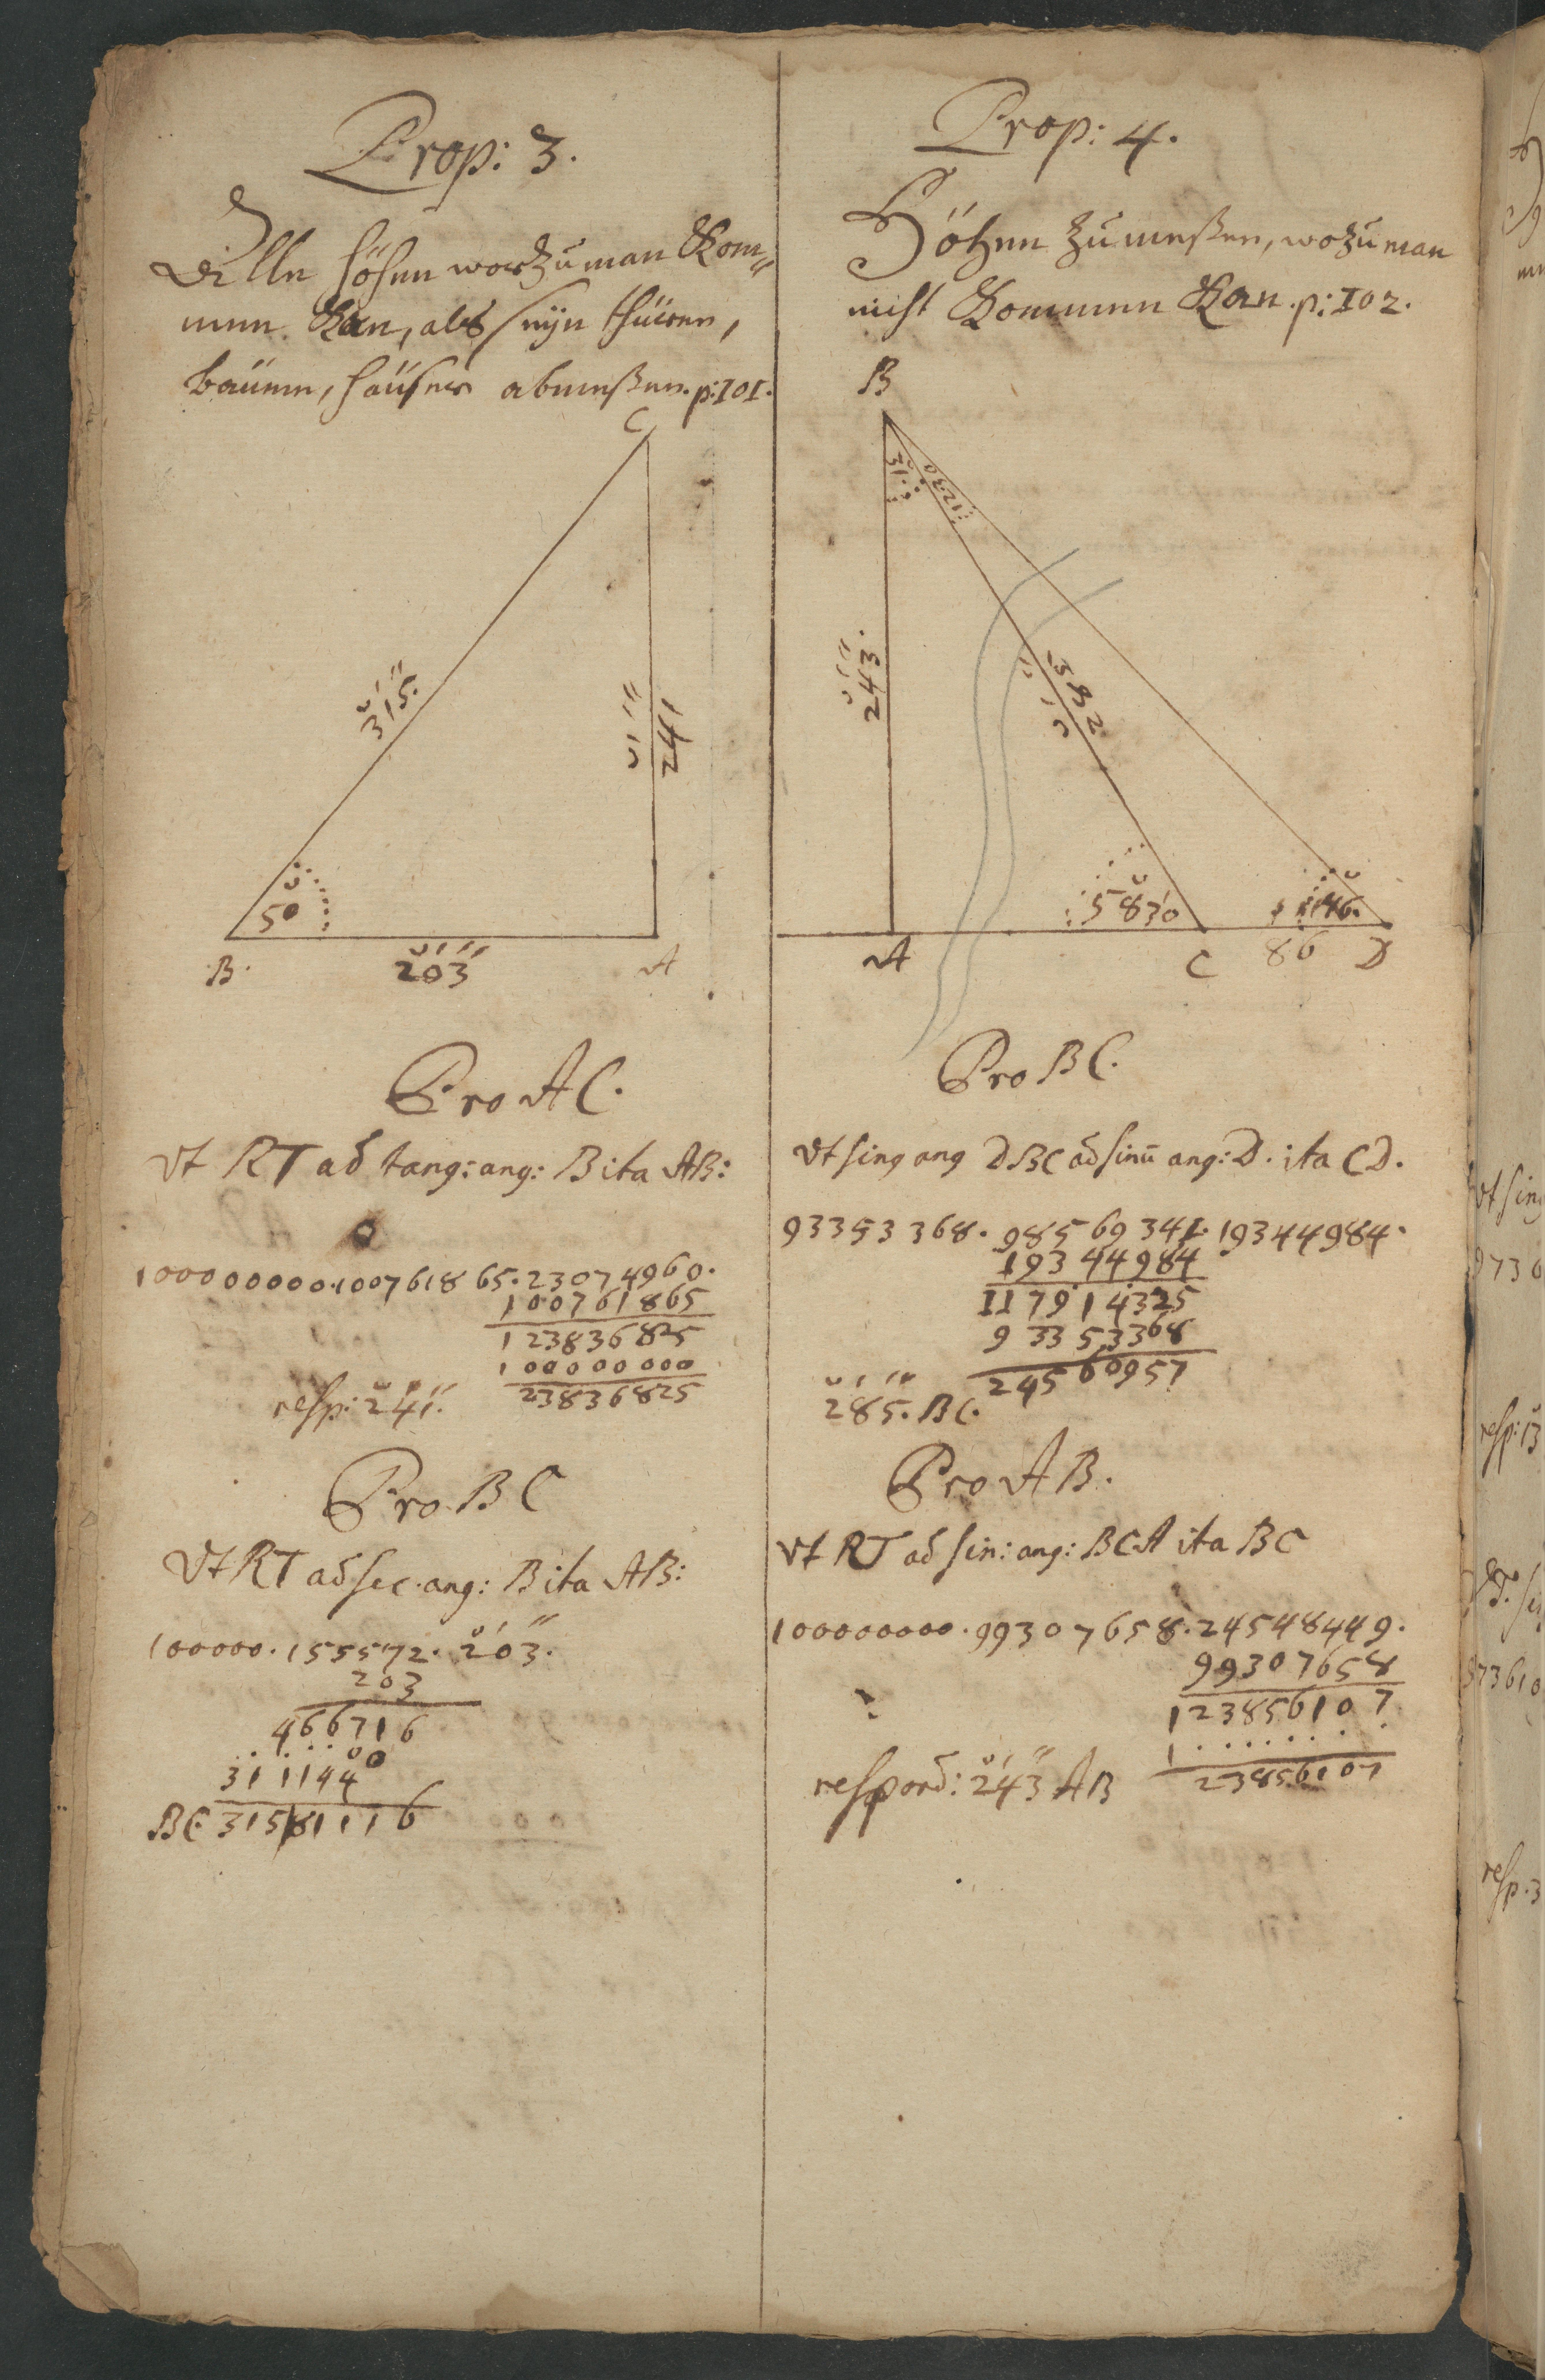 Prop: 3.
Alle höhen worzu man Kom=
men Kan, als seÿn thüren,
baüme, haüser abmeßen. p: 101.
C
315.
241
50
B.
203
A
Pro AC.
Vt RT ad tang: ang: B ita AB:
100000000.100761865.23074960.
100761865
123836825
100000000
23836825
resp: 241.
Pro BC
Vt RT ad sec. ang: B ita AB:
100000.155572.203.
203
466716
3111440
BC. 315|81116
Prop: 4.
Höhen zu meßen, wozu man
nicht Kommen Kan. p: 102.
B
31.
12.30
243.
5830
46.
A
C
86
D
Pro BC.
Vt sing ang DBC ad sinū ang: D. ita CD.
93353368. 98569341. 19344984.
19344984
117914325
93353368
24560957
285. BC.
Pro AB.
Vt RT ad sin: ang: BCA ita BC
100000000.99307658.24548449.
99307658
123856107
1 . . . . . . . .
23856107
respond: 243 AB